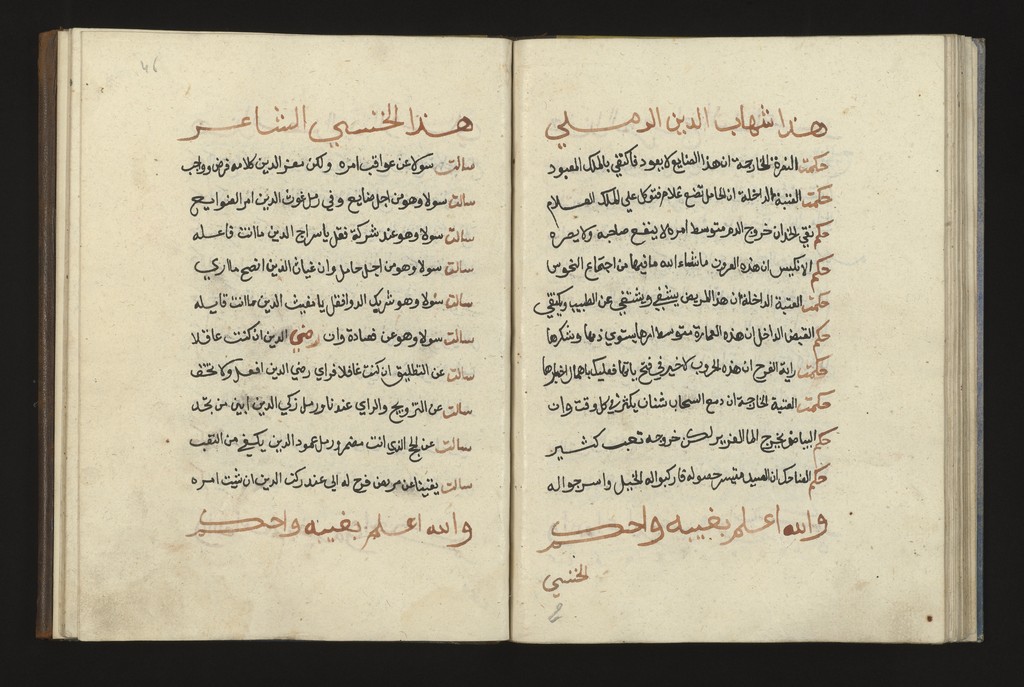 هذا شهاب الدين الرملي
حكمت النقرة الخارجة ان هذا الضايع لا يعود فاكتفي بالملك المعبود
حكمت العتبة الداخلة ان الحامل تضع غلام فتوكل على الملك العلام
حكم نقي الخد ان خروج الدم متوسط امره لا ينفع صاحبه ولا يضره
حكم الانكيس ان هذه العروت ما شاء الله ما فيها من اجتماع النحوس
حكمت العتبة الداخلة ان هذا المريض يشفي ويشتفي عن الطبيب ويكتفي
حكم القبض الداخل ان هذه العمارة متوسط امرها يستوي ذمها وشكرها
حكمت راية الفرح ان هذه الحروب لا خير في فتح بابها فعليك باهمال اخبارها
حكمت العتبة الخارجة ان دمع السحاب شتان يكثر في كل وقت وان
حكم البياض يخرج الما الغزير لكن خروجه تعب كثير
حكم الضاحك ان الصيد متيسر حصوله فاركبوا له الخيل واسرجوا له
والله اعلم بغيبه واحكم
الخنسي
46
هذا الخنسي الشاعر
سالت سولا عن عواقب امره ولكن معز الدين كلامه فرض وواجب
سالت سولا وهو من اجل ضايع وفي رمل غوث الدين امر الضوايع
سالت سولا وهو عند شركة فقل يا سراج الدين ما انت فاعله
سالت سولا وهو من اجل حامل وان غياث الدين انصح ما اري
سالت سولا وهو شريك الدوا فقل يا مغيث الدين ما انت قايله
سالت سولا وهو عن فصادة وان رضي الدين ان كنت عاقلا
سالت عن التطليق ان كنت غافلا فراي رضي الدين افعل ولا تخف
سالت عن التزويج والراي عندنا ورمل زكي الدين ابين من نجد
سالت عن الحج الذي انت مضمر ورمل عمود الدين يكفي من التعب
سالت يقينا عن مريض فرح له الى عند ركن الدين ان شيت امره
والله اعلم بغيبه واحكم